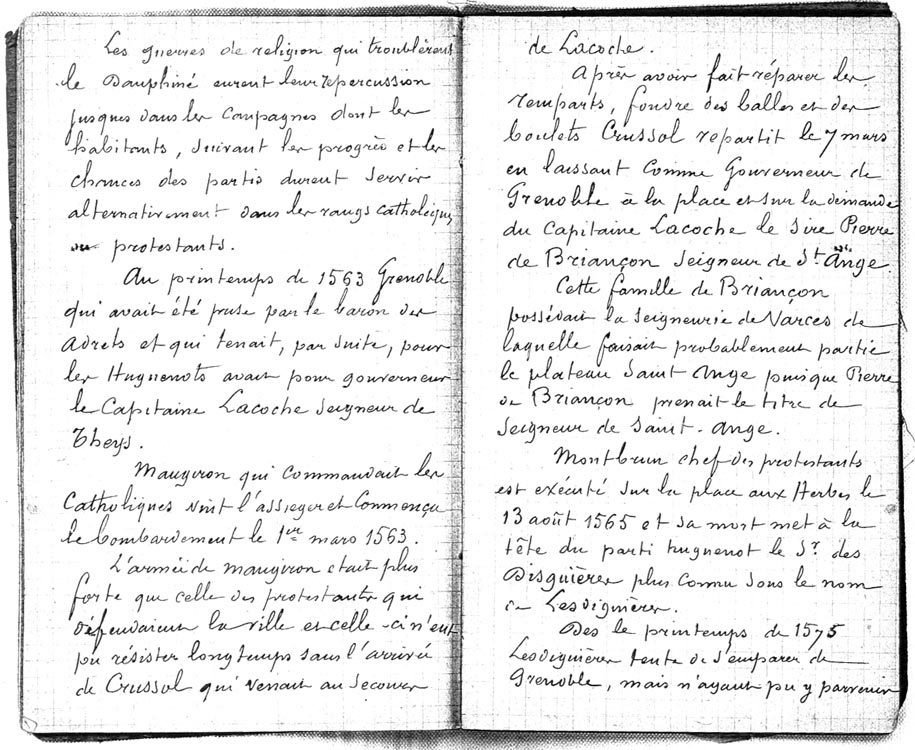 Les guerres de religion qui troublèrent
le Dauphiné eurent leur repercussion
jusques dans les Campagnes dont les
habitants, suivant les progrès et les
chances des partis durent servir
alternativement dans les rangs catholiques
ou protestants.
Au printemps de 1563 Grenoble
qui avait été prise par le baron des
Adrets et qui tenait, par suite, pour
les Huguenots avait pour gouverneur
le Capitaine Lacoche Seigneur de
Theys.
Maugiron qui commandait les
Catholiques vint l'assieger et commença
le bombardement le 1er mars 1563.
L'armée de Maugiron etait plus
forte que celle des protestants qui
défendaient la ville et celle-ci n'eut
pu résister longtemps sans l'arrivée
de Crussol qui venait au secours
de Lacoche.
Après avoir fait réparer les
remparts, fondre des balles et des
boulets Crussol repartit le 7 mars
en laissant comme Gouverneur de
Grenoble à la place et sur la demande
du Capitaine Lacoche le Sire Pierre
de Briançon Seigneur de St Ange
Cette famille de Briançon
possédait la Seigneurie de Varces de
laquelle faisait probablement partie
le plateau Saint Ange puisque Pierre
de Briançon prenait le titre de
Seigneur de Saint-Ange.
Montbrun chef des protestants
est exécuté sur la place aux Herbes le
13 août 1565 et sa mort met à la
tête du parti huguenot le Sr. des
Disguières plus connu sous le nom
de Lesdiguières.
Dès le printemps de 1575
Lesdiguières tente de s'emparer de
Grenoble, mais n'ayant pu y parvenir